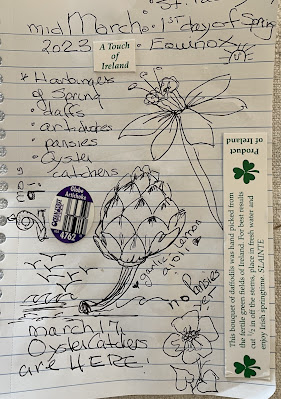 mid March • 1st day of Spring
2023 • Equinox
A Touch
of
Ireland
* Harbingers
of Sprung
• daffs
• artichokes
• pansies
• Oyster
catchers
Globe
Artichoke
4762
garlic
lemon
aioli
no pansies
march 17
Oystercatchers
are HERE!
Product
of Ireland
This bouquet of daffodils was hand picked from
the fertile green fields of Ireland. For best results
cut ½ in off the stems, place in fresh water and
enjoy Irish springtime. SLAINTE